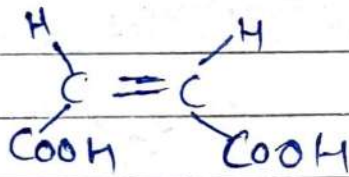 H H
C = C
COOH COOH